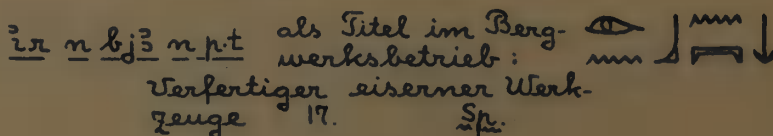 ỉr n bjꜣ n p.t als Titel im Berg-
werksbetrieb:
Verfertiger eiserner Werk-
zeuge 17. Sp.